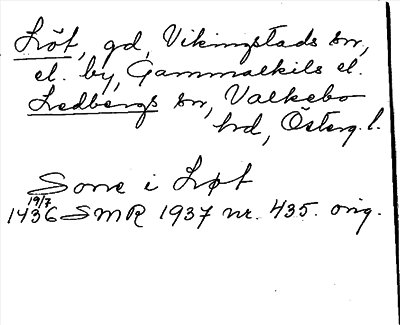 Löt, gd, Vikingstads sn,
el. by, Gammalkils el.
Ledbergs sn, Valkebo
hd, Österg. l.
Sone i Løt
19/7
1436 SMR 1937 nr. 435. orig.